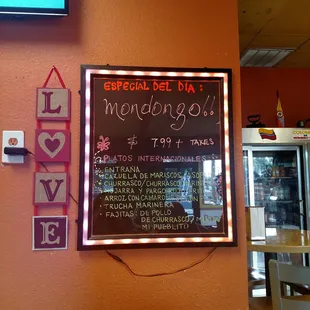 L
V
E
ESPECIAL DEL DIA:
mondongo!!
$ 7.99 + TAXES
PLATOS INTERNACIONALES
ENTRAÑA
CAZUELA DE MARISCOS
CHURRASCO/CHURRASCO
Y PARGO
ARROZ CON CAMAR
TRUCHA MARINERA
FAJITAS: DE POLLO
DE CHURRASCO/M
MI PUEBLITO